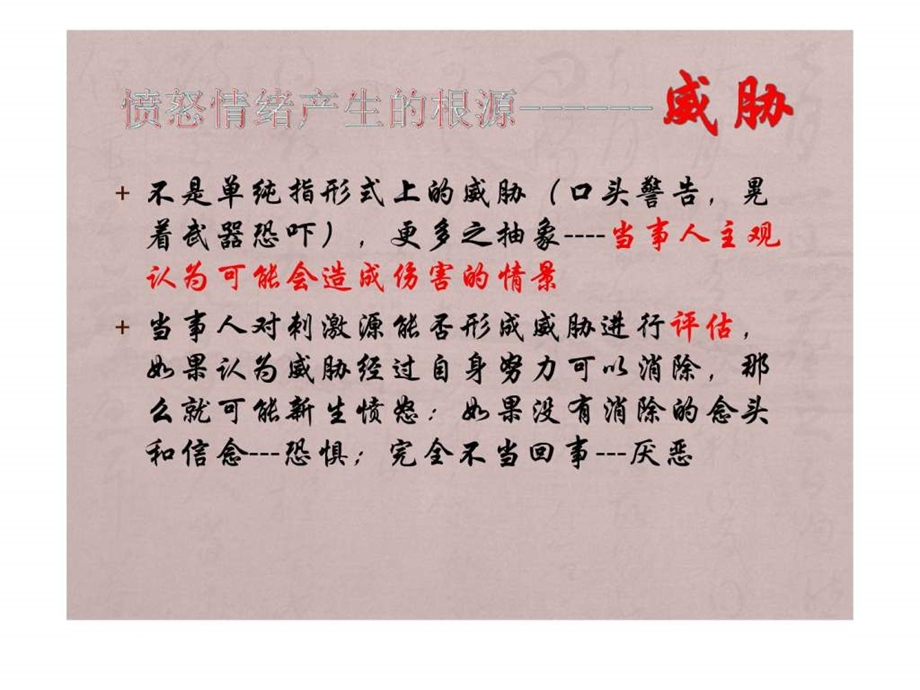 愤怒情绪产生的根源------威胁
不是单纯指形式上的威胁（口头警告，晃
着武器恐吓），更多之抽象----当事人主观
认为可能会造成伤害的情景
当事人对刺激源能否形成威胁进行评估，
如果认为威胁经过自身努力可以消除，那
么就可能新生愤怒：如果没有消除的念头
和信念---恐惧；完全不当回事---厌恶